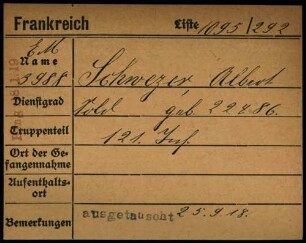 Frankreich Liste 1095/292
E M
Name
5988 Schwezer Albert
Dienstgrad Sold geb. 22.4.86.
Truppenteil 121. Inf.
Ort der Ge-
fangennahme
Aufenthalts-
ort
Bemerkungen ausgetauscht 25.9.18.